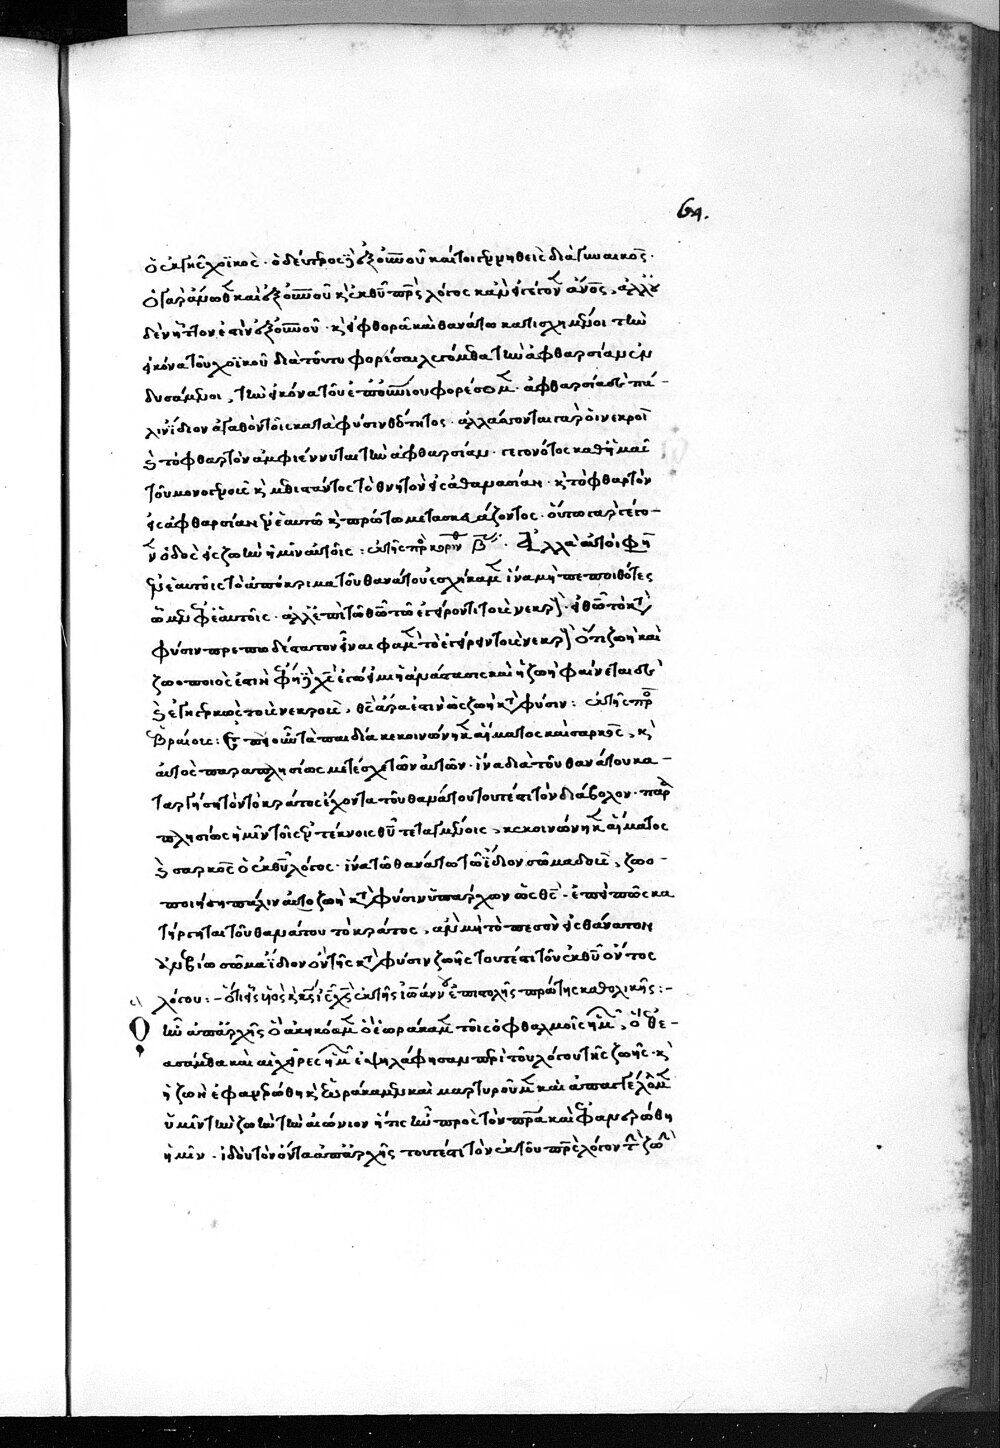 64.
ὁ ἐκ γῆς χοϊκὸς · ὁ δεύτερος ἐξ οὐνοῦ καίτοι γεννηθεὶς διὰ γυναικός ·
ὁ γὰρ ἄνωθεν καὶ ἐξ οὐνοῦ κ ἐκ θῦ πρς λόγος κἂν γέγονεν ἄνος, ἀλλ' οὐ
δὲν ἧττον ἐστὶν ἐξ οὐνοῦ · κ φθορᾶ καὶ θανάτω κατισχημένοι τὴν
εἰκόνα τοῦ χοϊκοῦ διὰ τοῦτο φορέσαι λεγόμεθα τὴν ἀφθαρσίαν ἐν
δυσάμενοι, τὴν εἰκόνα τοῦ ἐπουνίου φορέσομεν · ἀφθαρσία δὲ πά-
λιν ἴδιον ἀγαθὸν τοῖς κατὰ φύσιν θεότητος · ἀλλάσσονται γὰρ οἱ νεκροὶ
κ τὸ φθαρτὸν ἀμφιέννυται τὴν ἀφθαρσίαν · γεγονότος καθ' ἡμᾶς
τοῦ μονογενοῦς κ μεθιστάντος τὸ θνητὸν εἰς ἀθανασίαν · κ τὸ φθαρτὸν
εἰς ἀφθαρσίαν ἐν ἑαυτῶ κ πρώτω μετασκευάζοντος · οὕτω γὰρ γέγο-
νεν ὁδὸς εἰς ζωὴν ἡμῖν αὐτός : ἐκ τῆς πρὸ κοριν β · Ἀλλὰ αὐτοὶ φη
ἐν ἑαυτοῖς τὸ ἀπόκριμα τοῦ θανάτου ἐσχήκαμεν ἵνα μὴ πεποιθότες
ὦμεν ἐφ' ἑαυτοῖς · ἀλλ' ἐπὶ τῶ θεῶ τῶ ἐγείροντι τοὺς νεκρ · εἰ θεῶ τὸ κατὰ
φύσιν πρεπωδέστατον εἶναι φαμὲν τὸ ἐγείρειν τοὺς νεκρ ὅτι ζωὴ καὶ
ζωοποιός ἐστιν φησὶν χς ἐγώ εἰμι ἡ ἀνάστασις καὶ ἡ ζωή φαίνεται δὲ
κ ἐγηγερκὼς τοὺς νεκρούς, θς ἄρα ἐστὶν ὡς ζωὴ κτ φύσιν : ἐκ τῆς πρ
ἑβραίους : Ἐπεὶ οὖν τὰ παιδία κεκοινώνηκεν αἵματος καὶ σαρκός, κ
αὐτὸς παραπλησίως μετέσχε τῶν αὐτῶν · ἵνα διὰ τοῦ θανάτου κα-
ταργήση τὸν τὸ κράτος ἔχοντα τοῦ θανάτου τουτέστι τὸν διάβολον · παρα
πλησίως ἡμῖν τοῖς ἐν τέκνοις θῦ τεταγμένοις, κεκοινώνηκεν αἵματος
κ σαρκὸς ὁ ἐκ θῦ λόγος · ἵνα τῶ θανάτω τὸ ἴδιον σῶμα δοὺς, ζωο-
ποιήση πάλιν αὐτὸ ζωὴ κτ φύσιν ὑπάρχων ὡς θς · ἐπεὶ πῶς κα
τήργηται τοῦ θανάτου τὸ κράτος, ἂν μὴ τὸ πεσὸν εἰς θάνατον
ἀνεβίω σῶμα ἴδιον ὂν τῆς κτ φύσιν ζωῆς τουτέστι τοῦ ἐκ θῦ ὄντος
λόγου : - ὅτι εἷς ὑὸς κ κς ις χς ἐκ τῆς ἰωάννου ἐπιστολῆς πρώτης καθολικῆς : -
Ὃ ἦν ἀπαρχῆς ὃ ἀκηκόαμεν ὃ ἑωράκαμεν τοῖς ὀφθαλμοῖς ἡμῶν, ὃ ἐθε-
ασάμεθα καὶ αἱ χεῖρες ἡμῶν ἐψηλάφησαν περὶ τοῦ λόγου τῆς ζωῆς · κ
ἡ ζωὴ ἐφανερώθη κ ἑωράκαμεν καὶ μαρτυροῦμεν καὶ ἀπαγγέλομεν
ὑμῖν τὴν ζωὴν τὴν αἰώνιον ἥτις ἦν πρὸς τὸν πρα καὶ ἐφανερώθη
ἡμῖν · ἰδοὺ τὸν ὄντα ἀπαρχῆς τουτέστι τὸν ἐκ τοῦ πρς λόγον τὴν ζωὴν